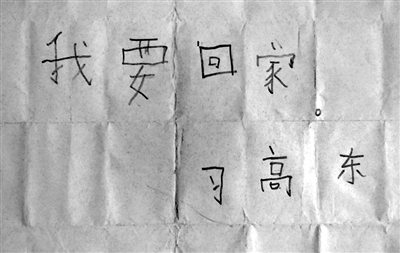 我要回家。
习高东